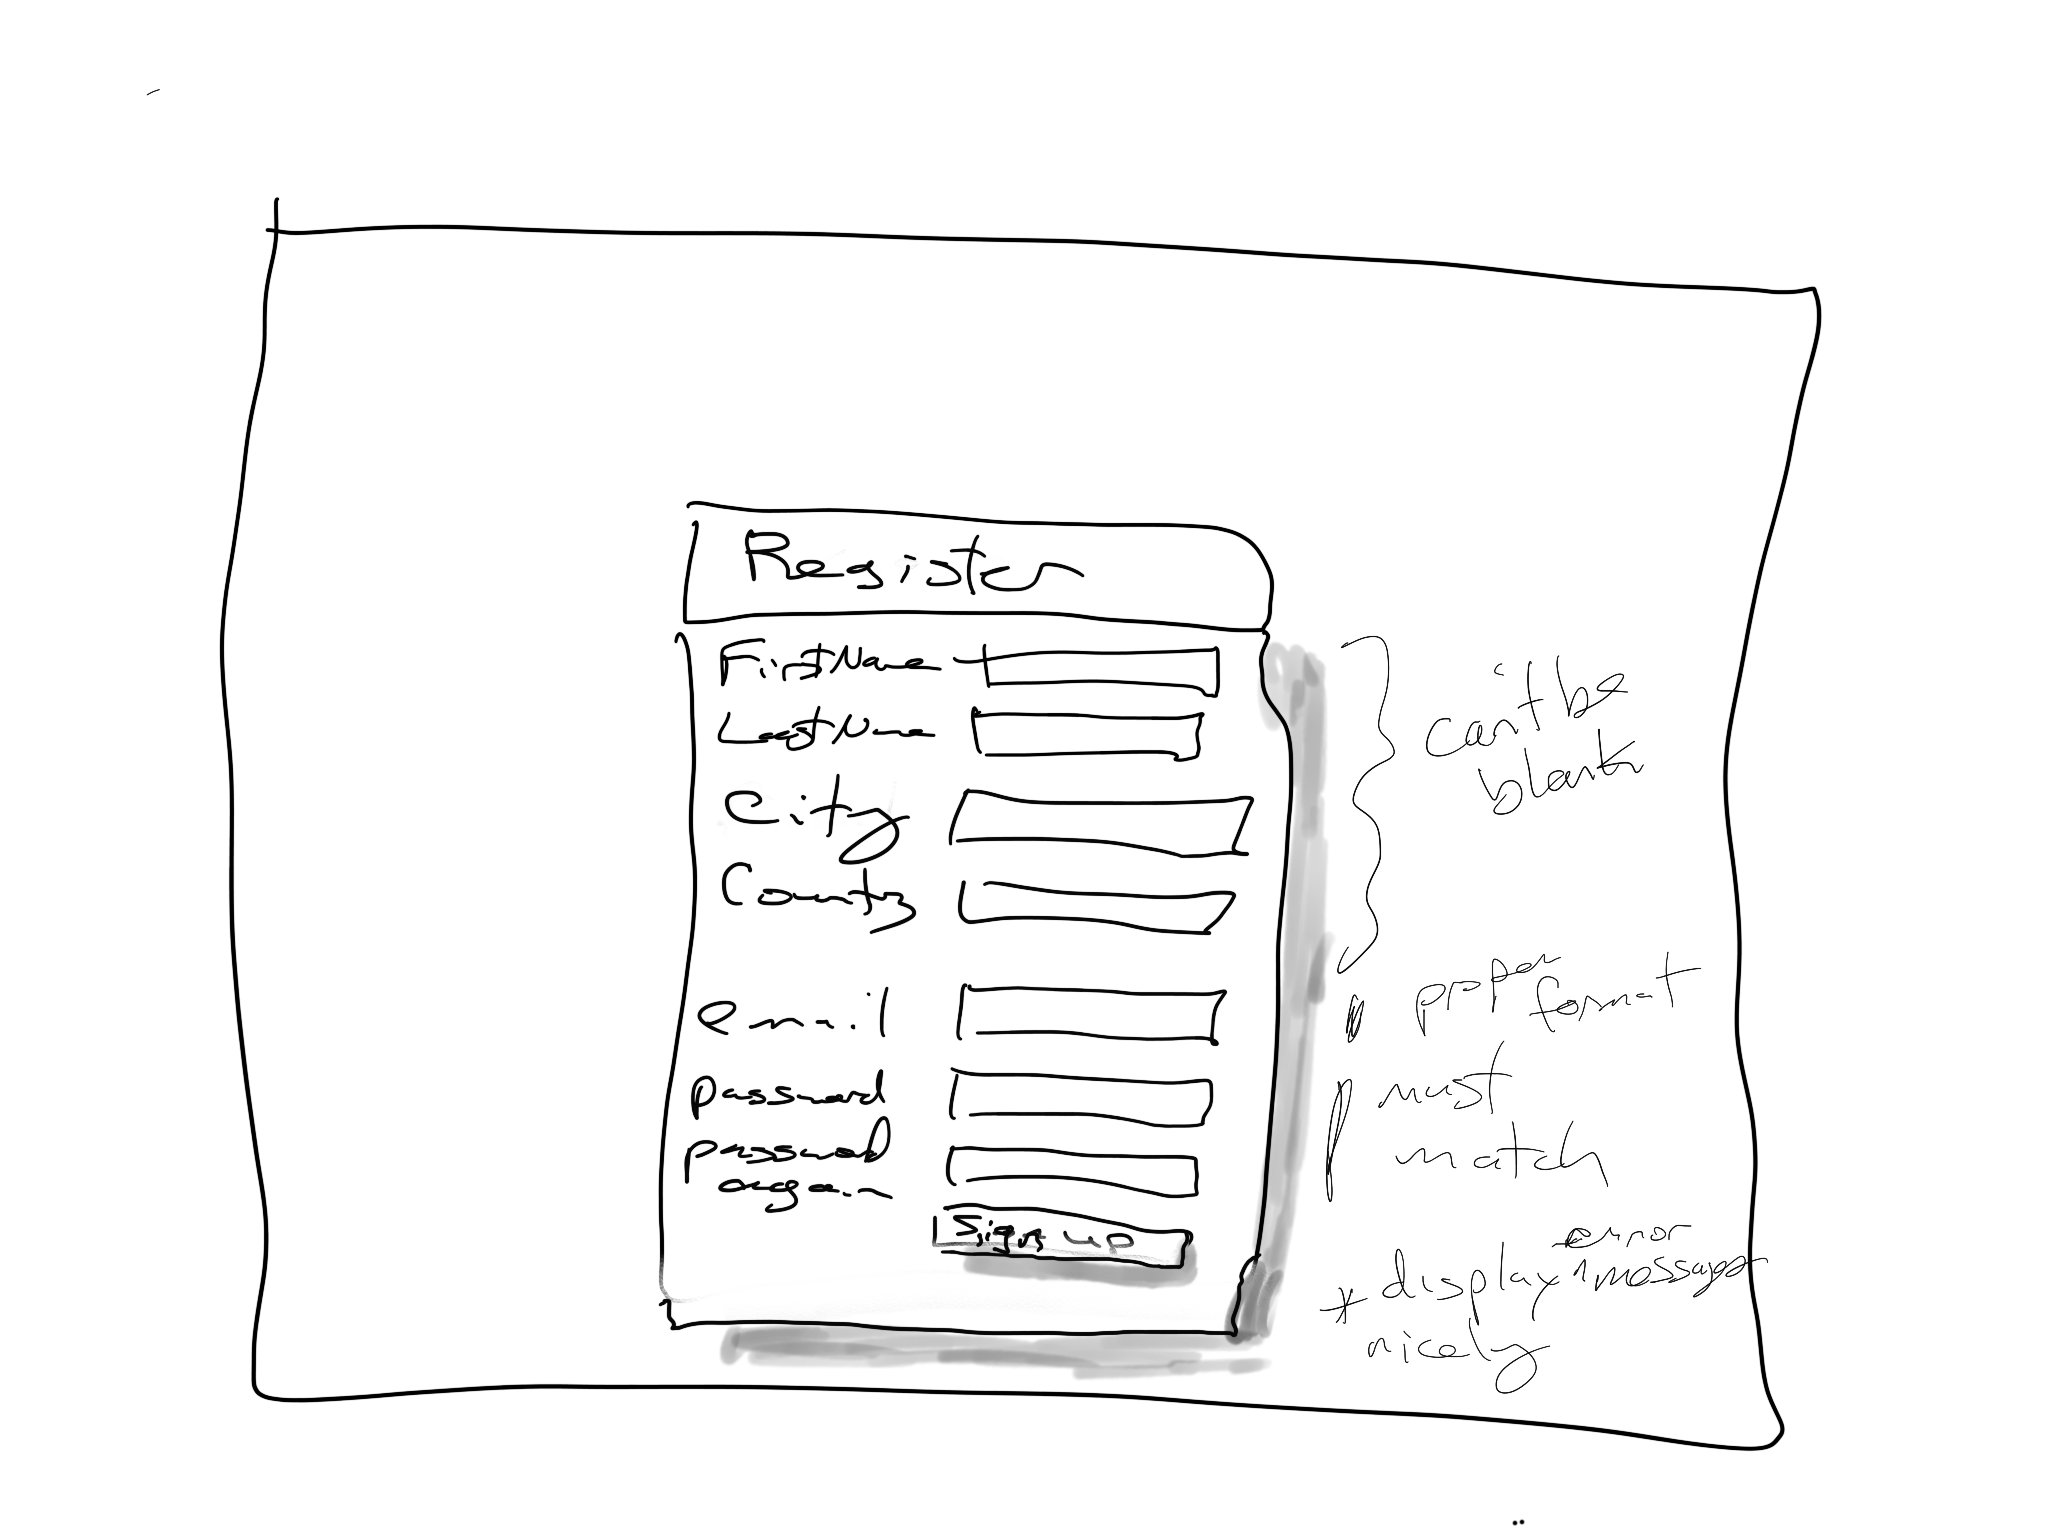 Register
FirstName
LastName
City
County
email
password
password
again
Sign up
can't be
blank
proper
format
must
match
* display error messages
nicely